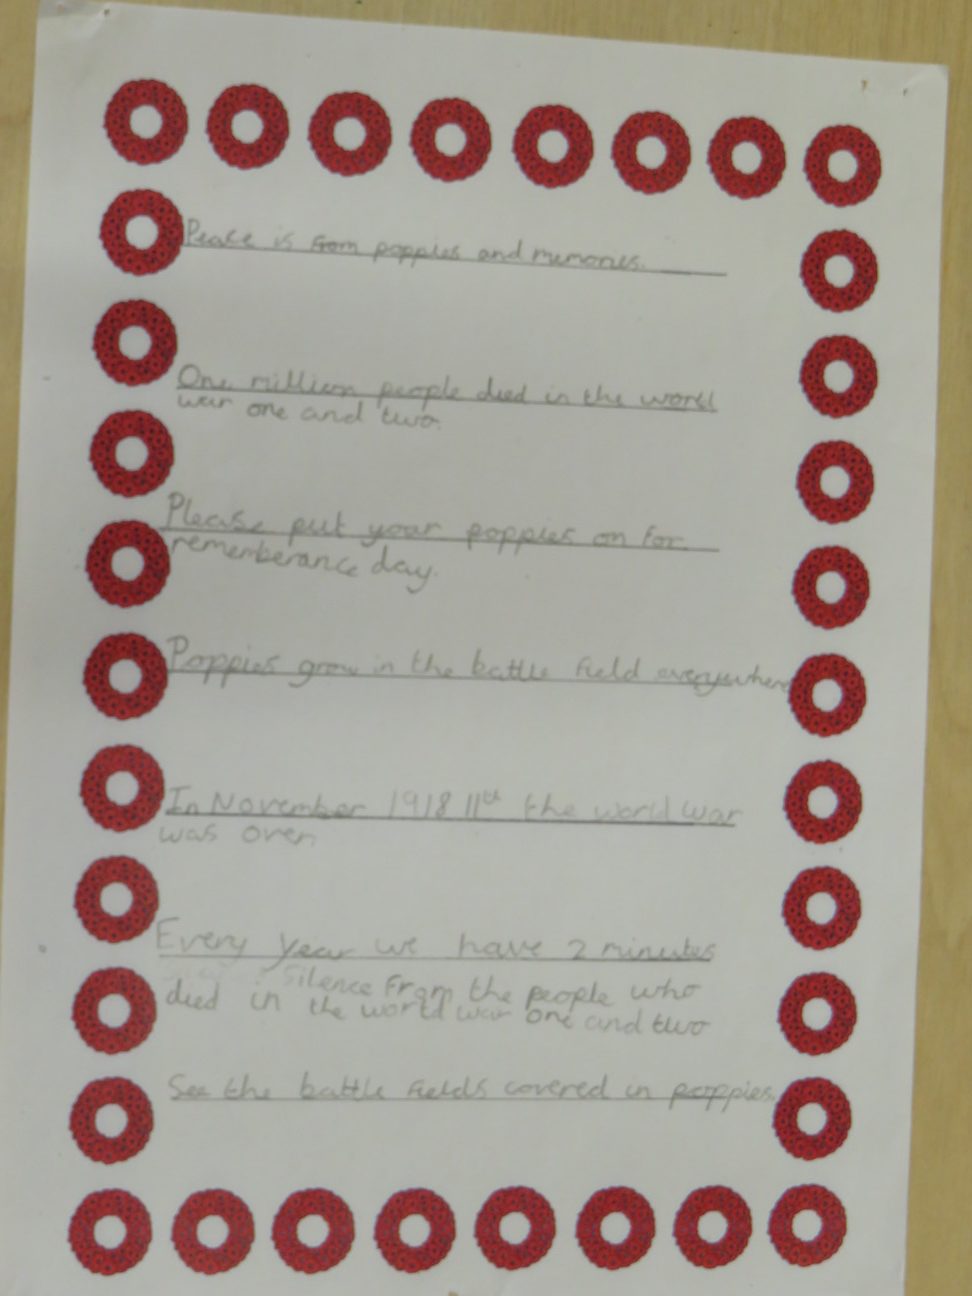 Pease is from poppies and memories.
One million people died in the world
war one and two.
Please put your poppies on for
rememberance day.
Poppies grow in the battle field everywhere
In November 1918 11th the world war
was over.
Every year we have 2 minutes
silence from the people who
died in the world war one and two
See the battle fields covered in poppies.